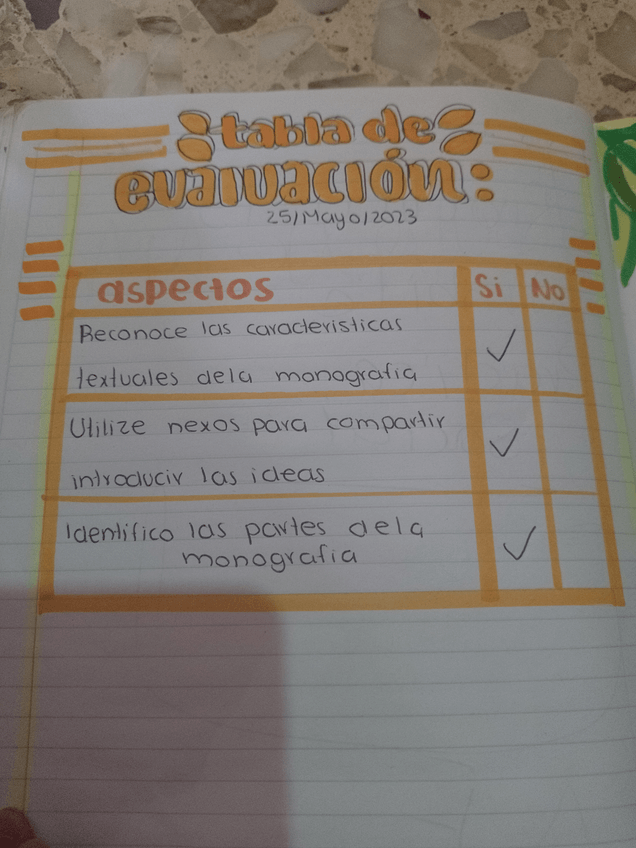 tabla de
evaluación:
25/Mayo/2023
aspectos Si No
Reconoce las caracteristicas
textuales dela monografia
Utilize nexos para compartir
introducir las ideas
Identifico las partes dela
monografia